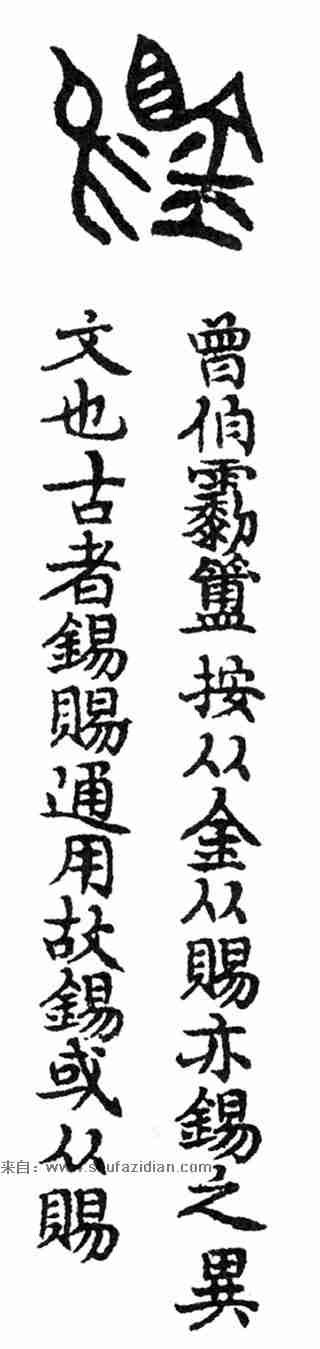 曾伯霥簠按从金从賜亦錫之異
文也古者錫賜通用故錫或从賜
来自：www.shufazidian.com